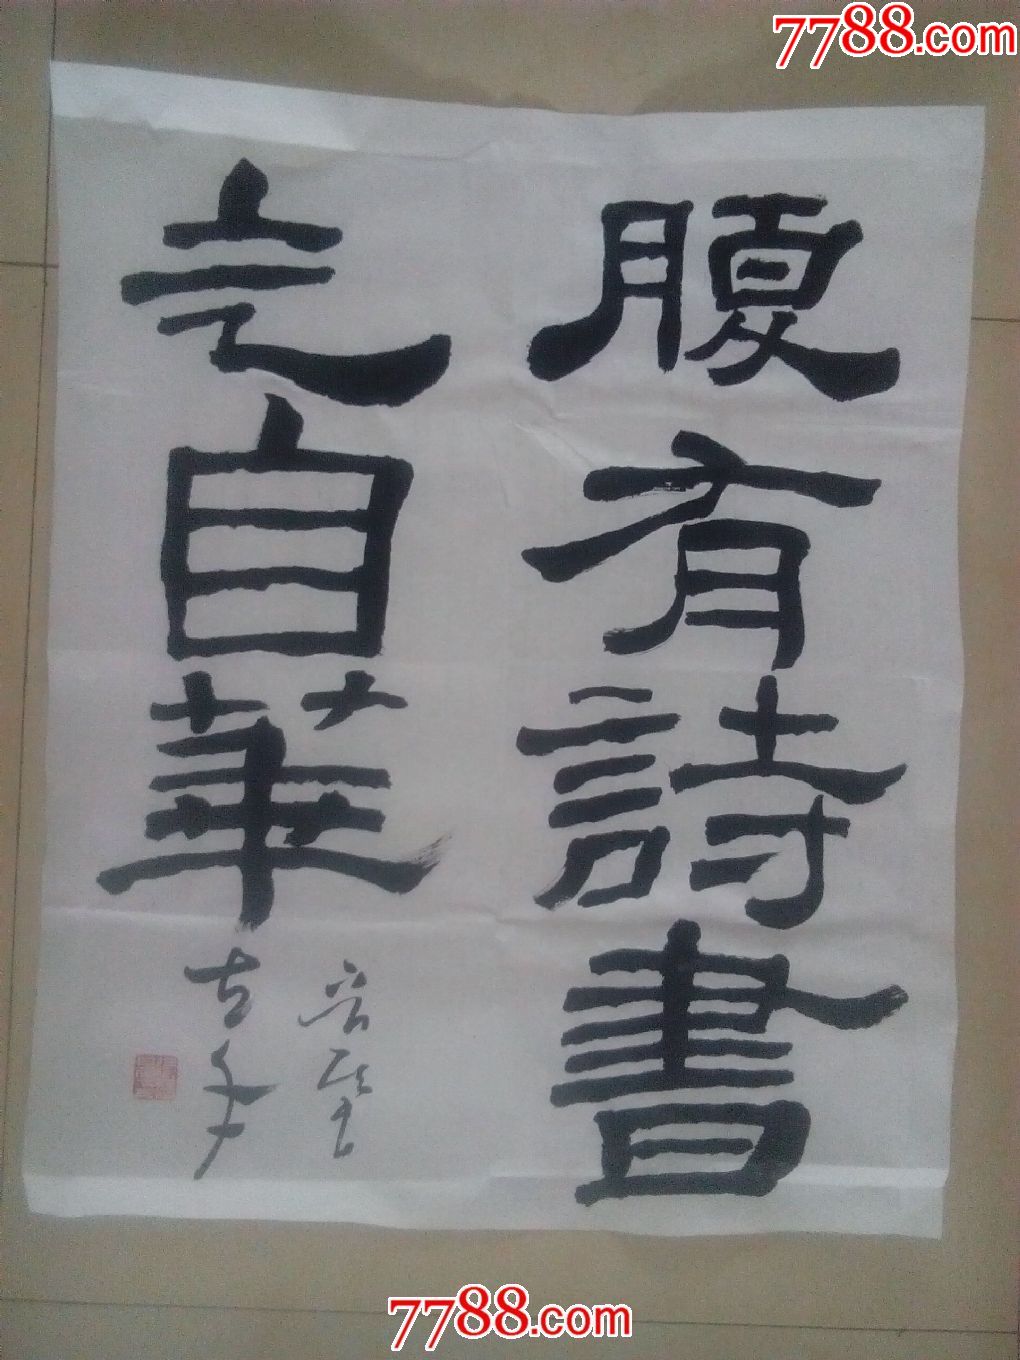 7788.com
腹有詩書
气自華
7788.com